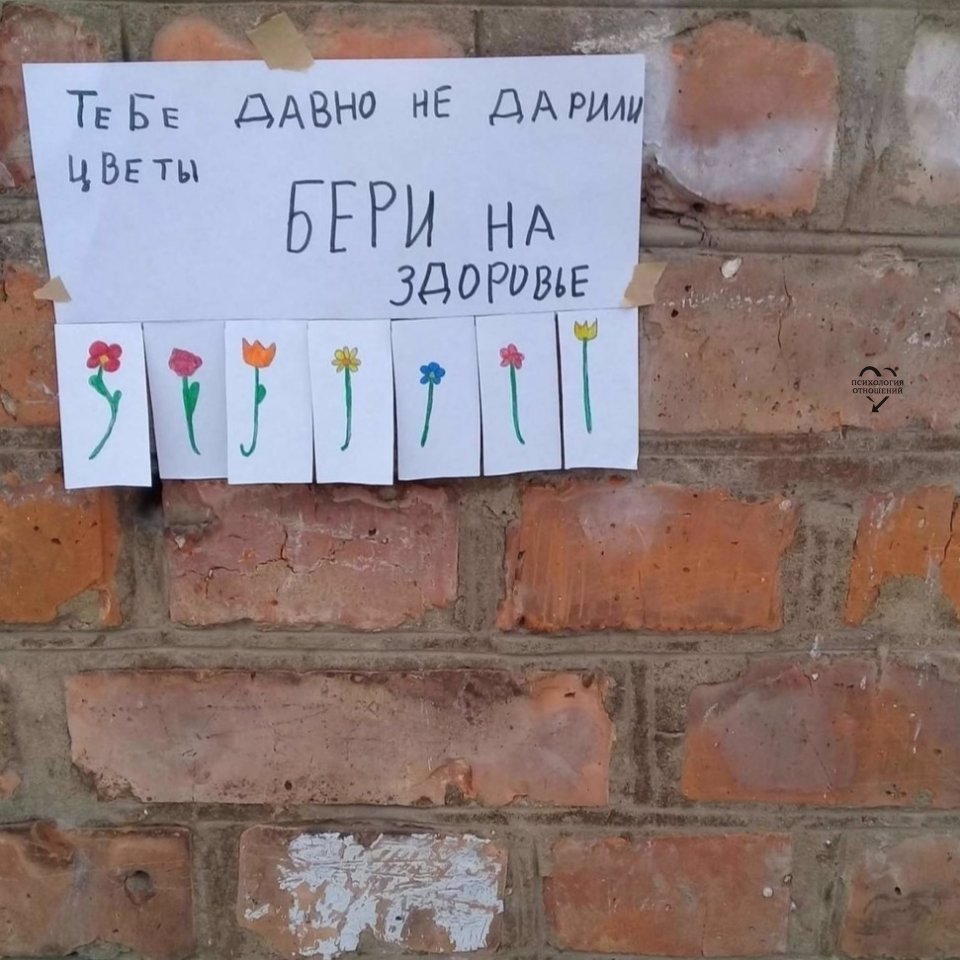 ТЕБЕ ДАВНО НЕ ДАРИЛИ
ЦВЕТЫ
БЕРИ НА
ЗДОРОВЬЕ
ПСИХОЛОГИЯ
ОТНОШЕНИЙ